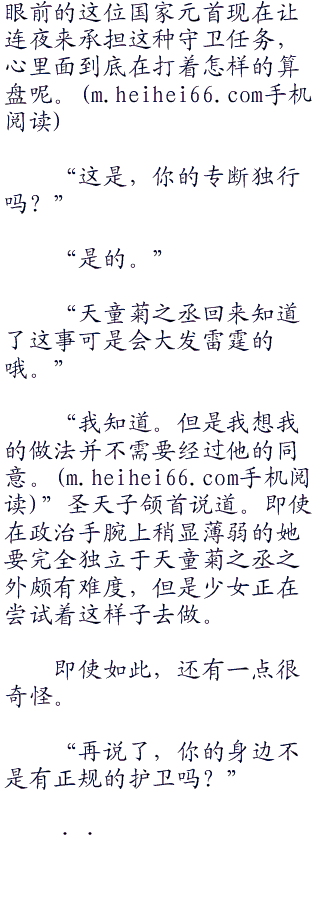 眼前的这位国家元首现在让
连夜来承担这种守卫任务，
心里面到底在打着怎样的算
盘呢。(m.heihei66.com手机
阅读)
“这是，你的专断独行
吗？”
“是的。”
“天童菊之丞回来知道
了这事可是会大发雷霆的
哦。”
“我知道。但是我想我
的做法并不需要经过他的同
意。(m.heihei66.com手机阅
读)”圣天子颌首说道。即使
在政治手腕上稍显薄弱的她
要完全独立于天童菊之丞之
外颇有难度，但是少女正在
尝试着这样子去做。
即使如此，还有一点很
奇怪。
“再说了，你的身边不
是有正规的护卫吗？”
．．